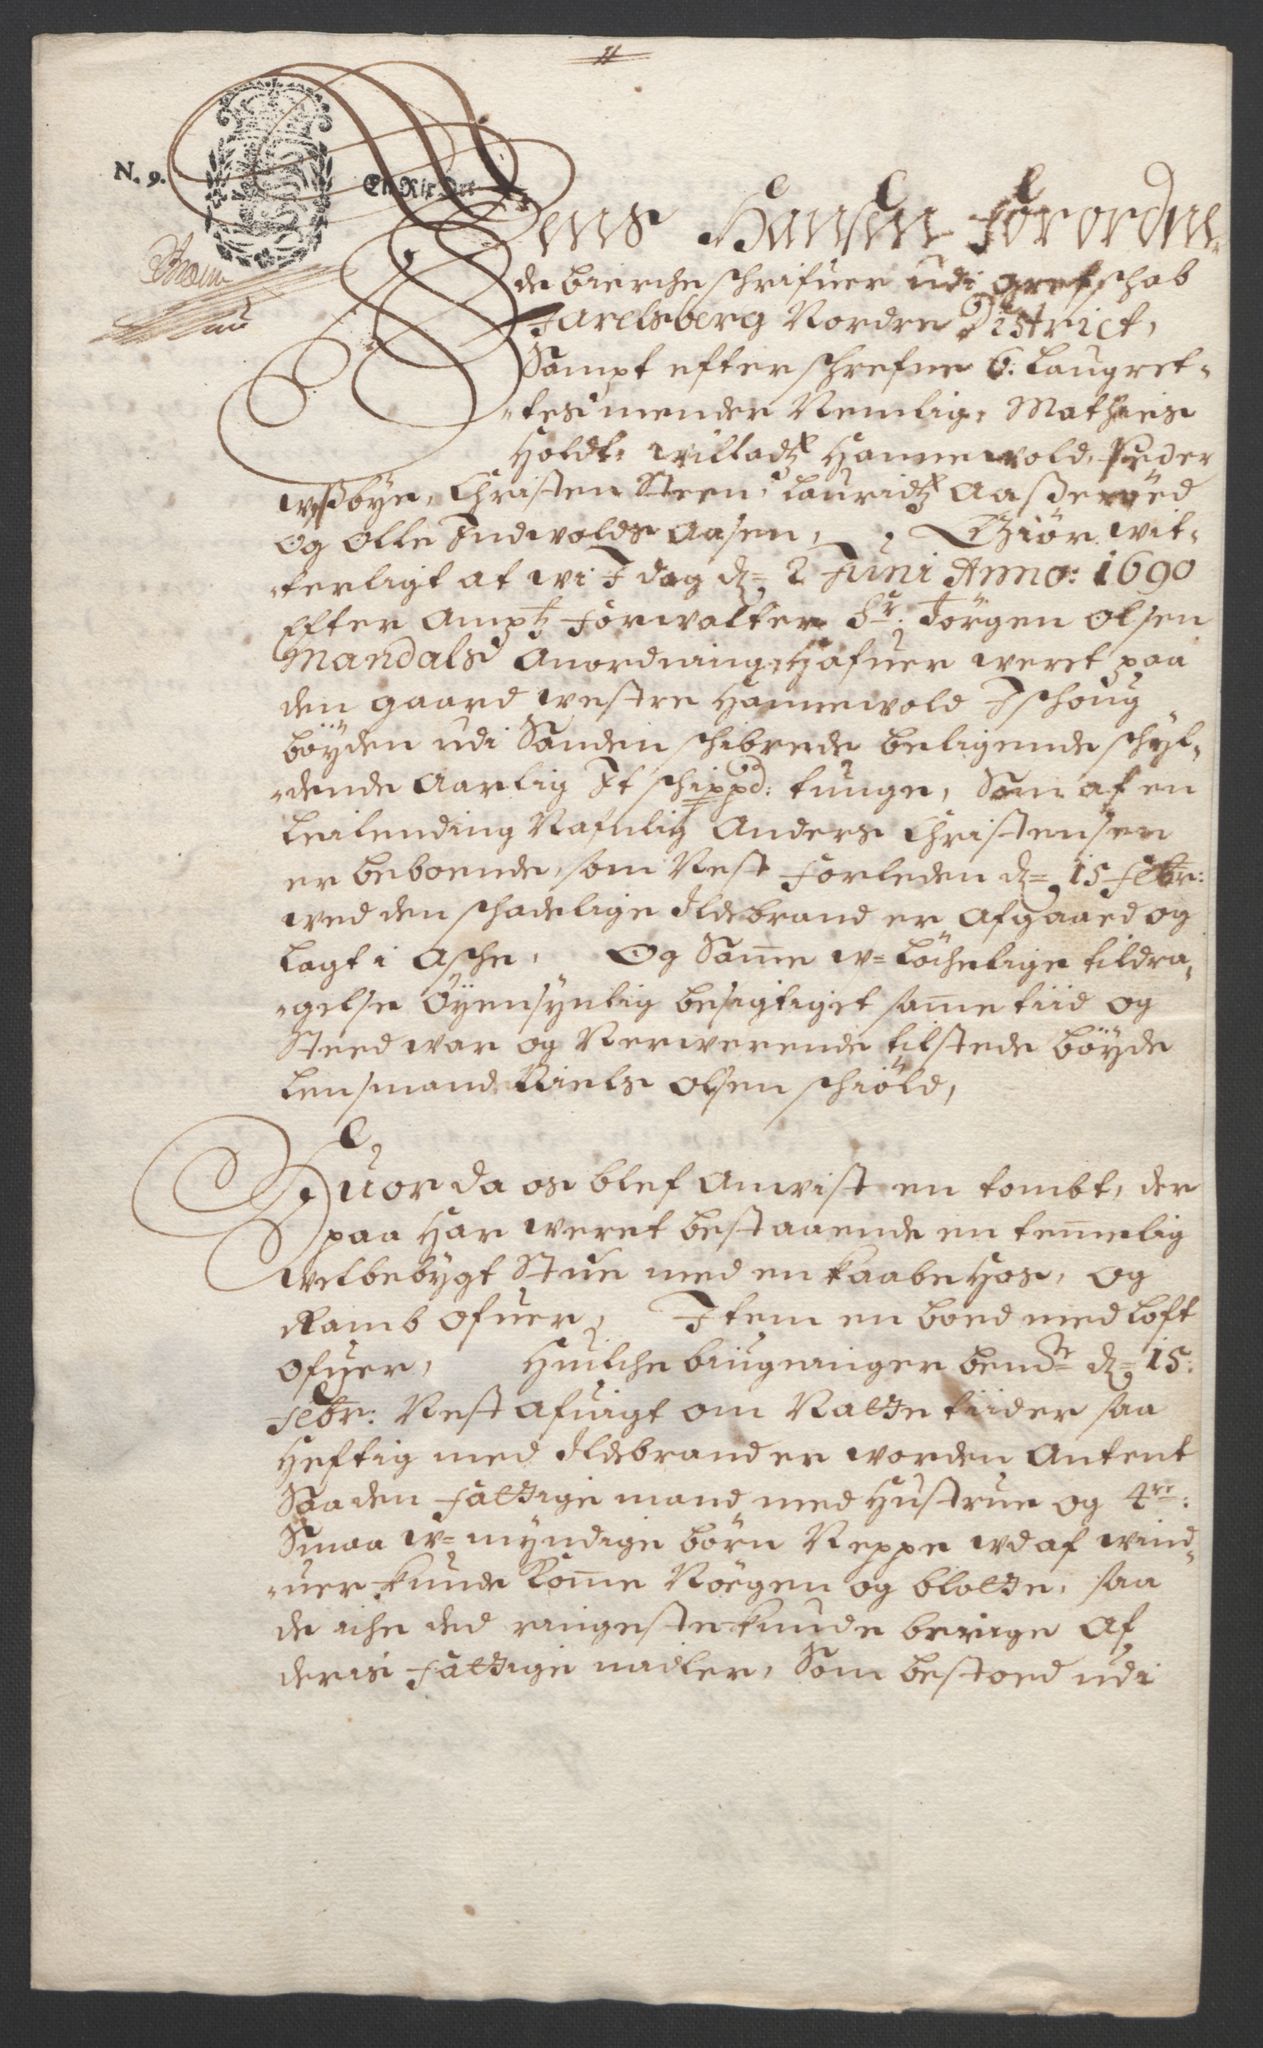 N. 9. En Rix Ort
Jens Hansen forordne-
de bierche schrifuer udi gref schab
Jarelsberg Nordre District,
Sampt efter schrefne 6: Laugret-
-tes mender Nemlig: Mathies
Holdt, willadtz Hannewold, Peder
wessbye, Christen Steen, Lauridtz Aasseröed
og Olle Indwolds Aasen, Giör wit-
-terligt at wi I dag d= 2 Juni Anno: 1690
Efter Ampts forwalter Sr: Jörgen Olsen
Mandals Anordning Hafuer weret paa
den gaard westre Hannewold I schoug
böyden udi Sanden schibrede beligende schyl-
-dende Aarlig It schippd: tunge, Som af en
Leilending Nafnlig Anders Christensen
er beboende, som Nest forleden d= 15 febr:
wed den schadelige Ildebrand er afgaaed og
lagt i Asche, Og Same w= löchelige tildra-
-gelse Öyensynlig besigtiget same tiid og
Steed war og Nerwerende tilstede böyde
Lensmand Niels Olsen schiöld,
Huor da os blef Anwist en tombt, der
paa Har weret bestaaende en temelig
welbebygt Stue med en kaabe Hos, og
Ramb ofuer, Item en boed med Loft
ofuer, Huilche biugninger bende d= 15:
febr: Nest afuigt om Natte tiider saa
Heftig med Ildebrand er worden Antent
Saa den fattige mand med Hustrue og 4re:
Smaa w= myndige börn Neppe wd af wind-
-uer kunde kome Nögen og blotte, saa
de iche ded ringeste kunde berige Af
deris fattige midler, Som bestoed udi